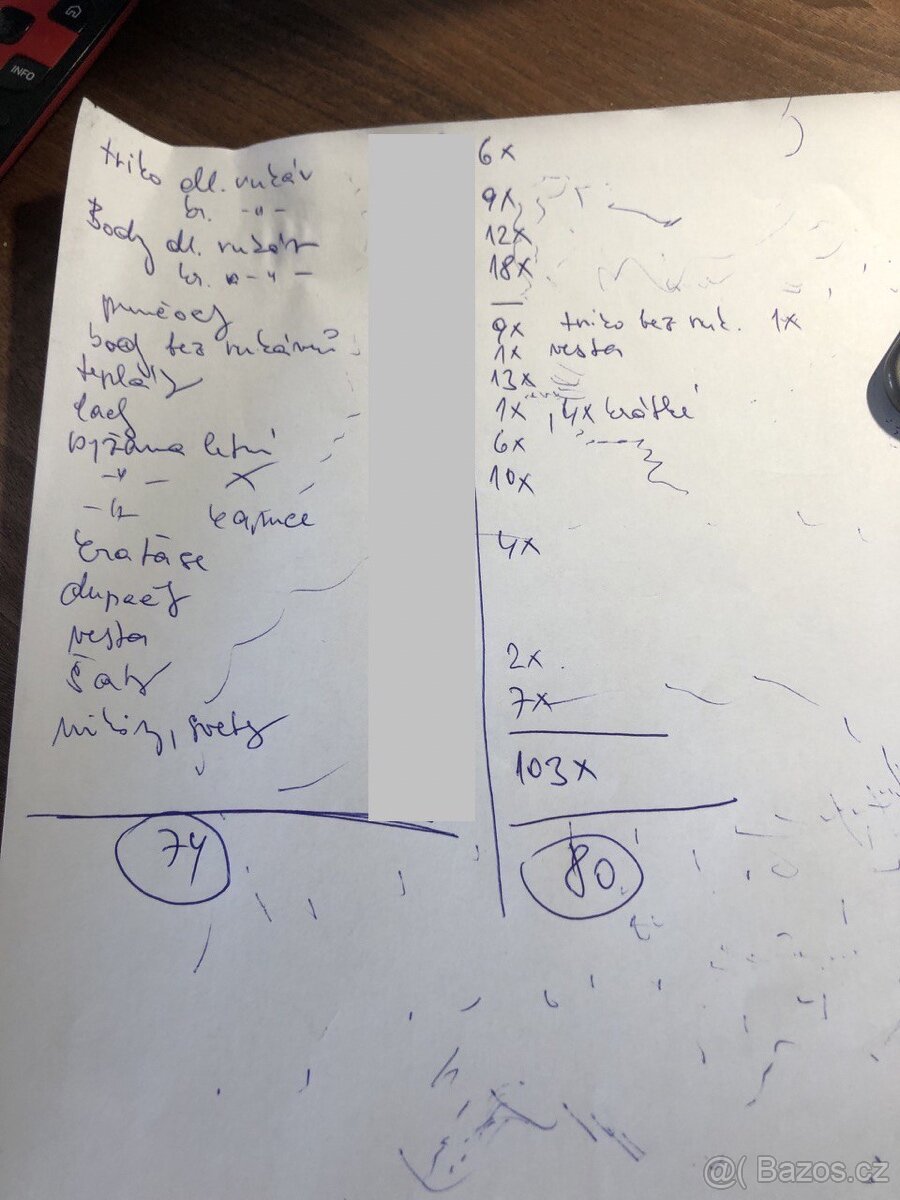 INFO
triko dl. rukáv 6x
kr. -"- 9x
Body dl. rukáv 12x
kr. -"- 18x
punčochy —
body bez rukávů 9x triko bez ruk. 1x
1x vesta
tepláky 13x
1x, 4x krátké
pyžama letní 6x
-"- 10x
-"- kapuce
kraťase 4x
dupačky
vesta
šaty 2x
mikiny, svetry 7x
103x
74 80
@( Bazos.cz